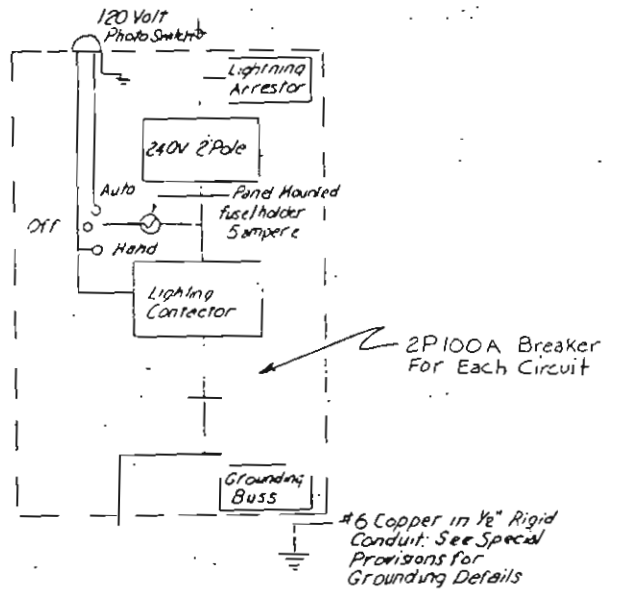 120 Volt
Photo Switch
Lightning
Arrestor
240V 2 Pole
Auto
Panel Mounted
fuseholder
5 ampere
Off
Hand
Lighting
Contactor
2P100A Breaker
For Each Circuit
Grounding
Buss
#6 Copper in ½" Rigid
Conduit: See Special
Provisions for
Grounding Details